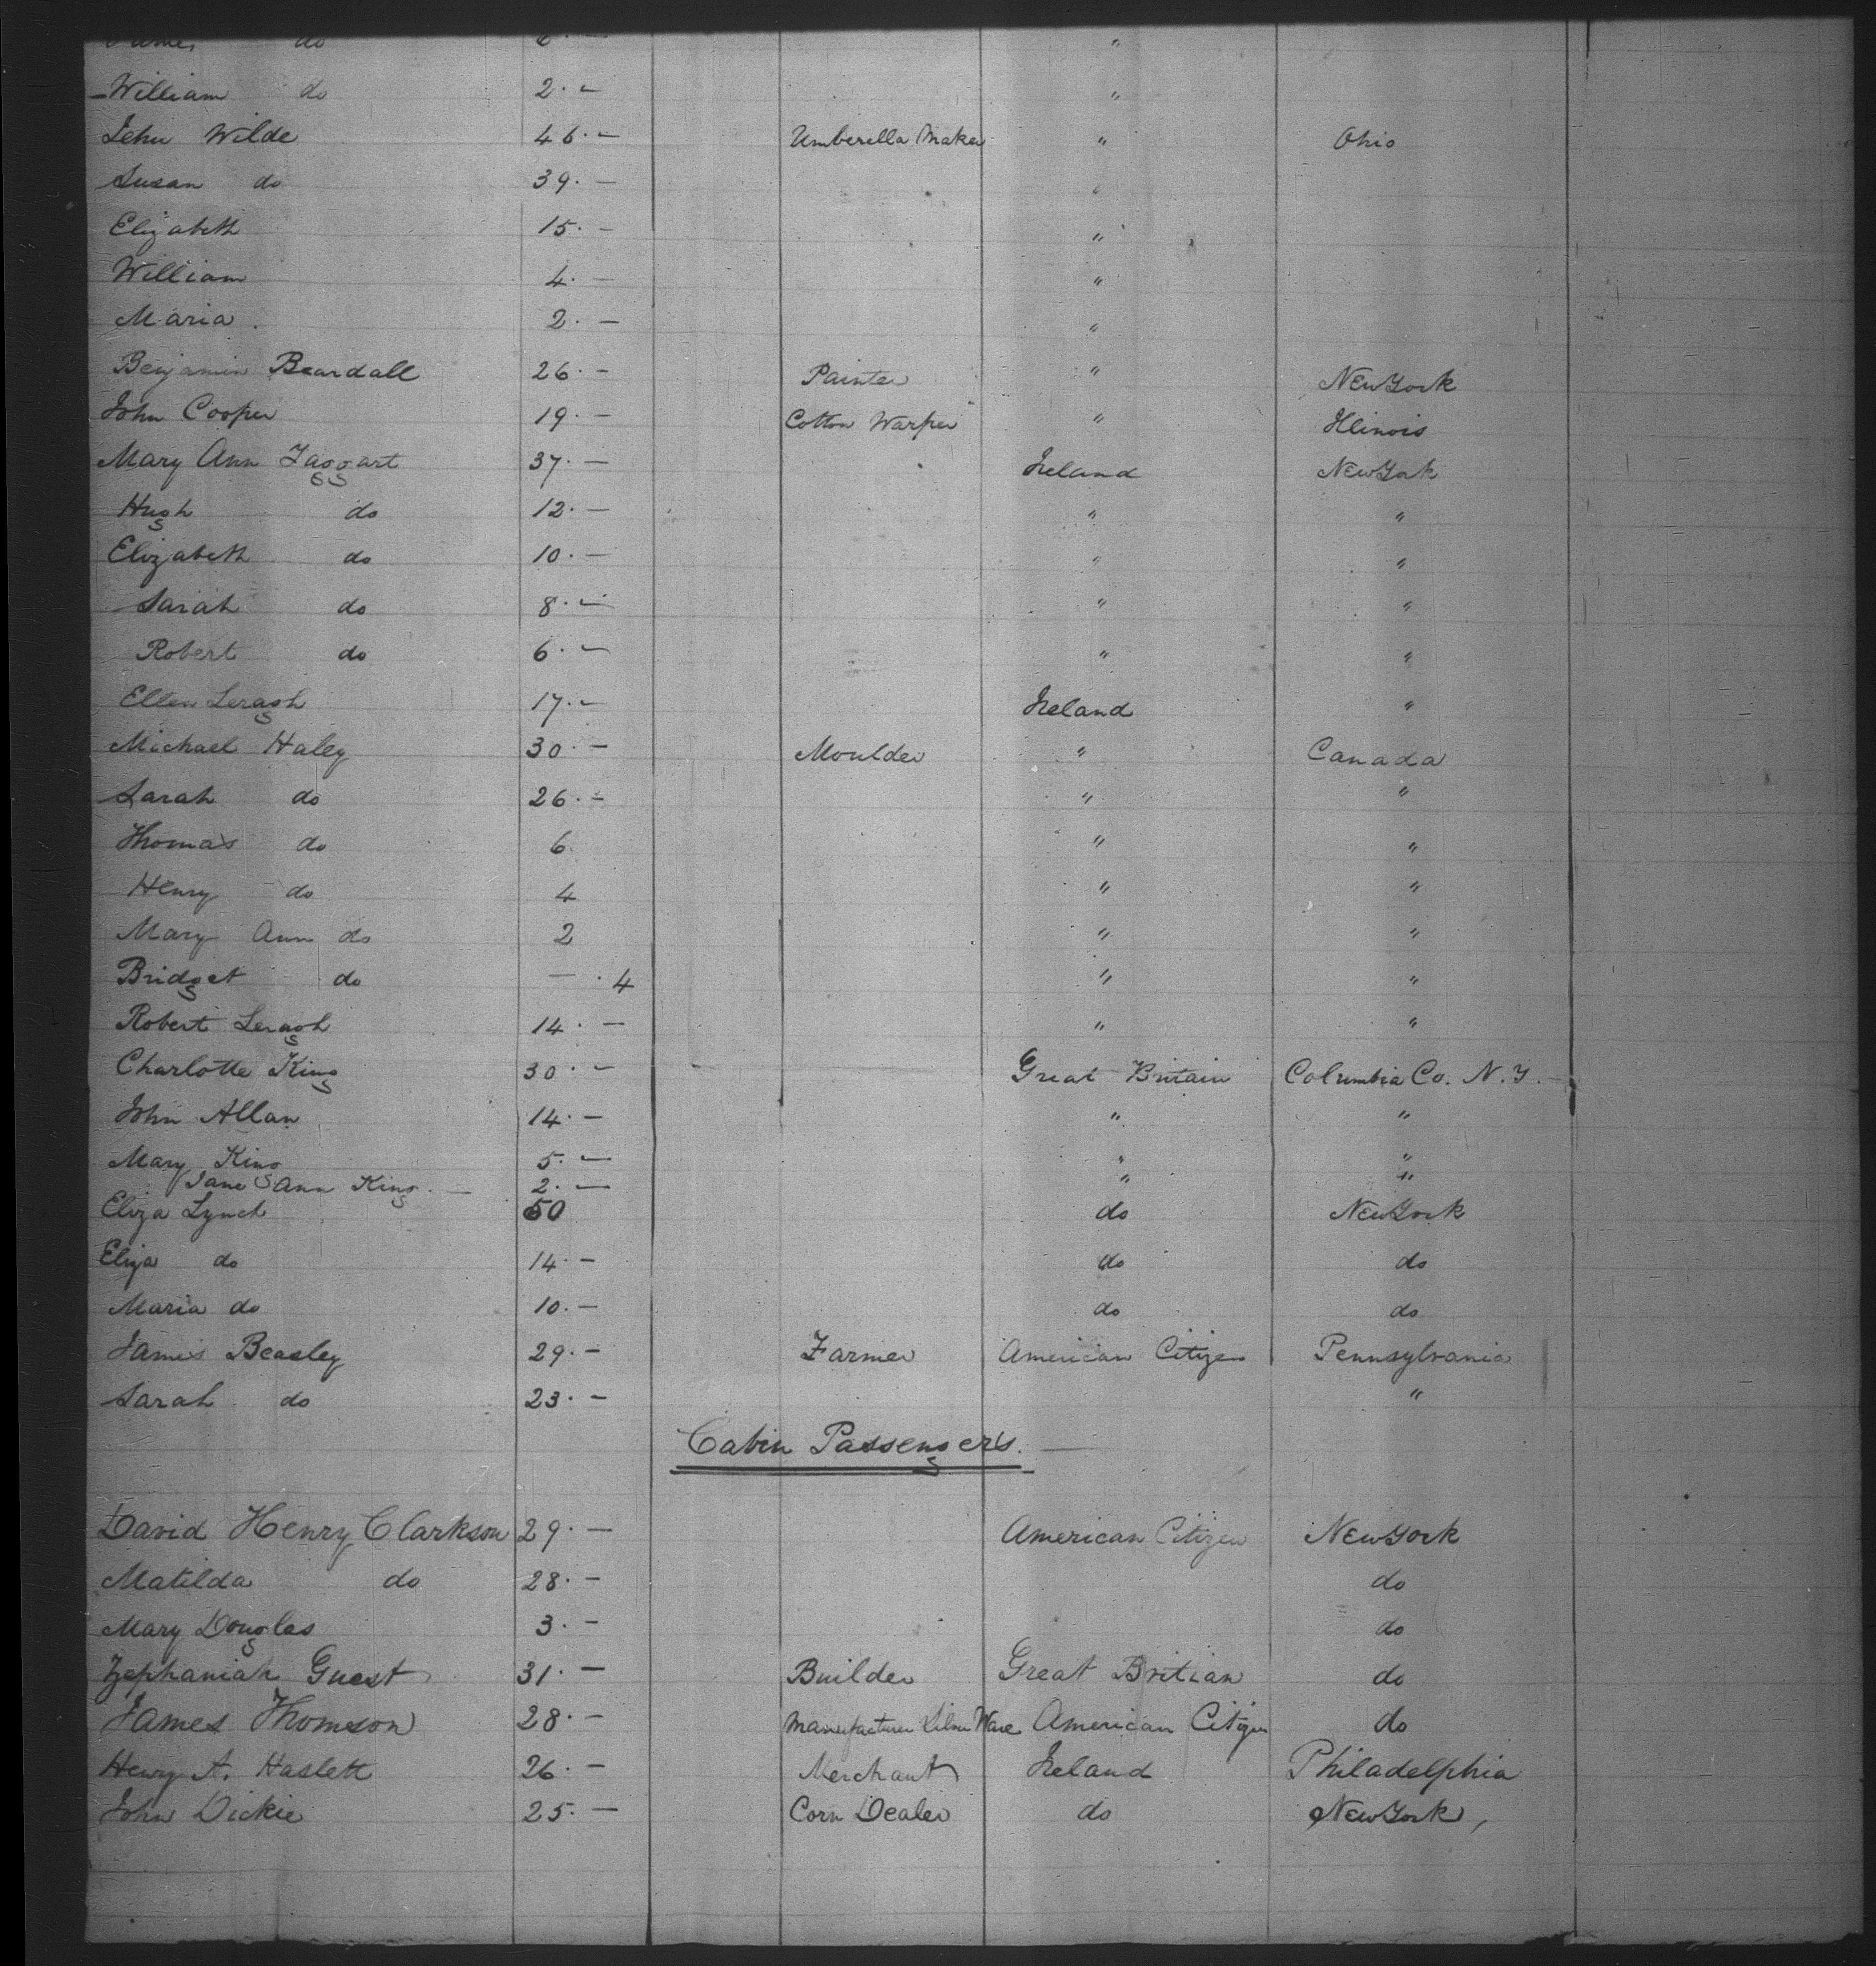 James do 6. — "
William do 2. — "
John Wilde 46. — Umberella Maker " Ohio
Susan do 39. — "
Elizabeth 15. — "
William 4. — "
Maria. 2. — "
Benjamin Beardall 26. — Painter " New York
John Cooper 19. — Cotton Warper " Illinois
Mary Ann Taggart 37. — Ireland New York
Hugh do 12. — " "
Elizabeth do 10. — " "
Sarah do 8. — " "
Robert do 6. — " "
Ellen Leragh 17. — Ireland "
Michael Haley 30. — Moulder " Canada
Sarah do 26. — " "
Thomas do 6. " "
Henry do 4 " "
Mary Ann do 2 " "
Bridget do — . 4 " "
Robert Leragh 14. — " "
Charlotte King 30. — Great Britain Columbia Co. N.Y.
John Allan 14. — " "
Mary King 5. — " "
Jane Ann King. — 2. — " "
Eliza Lynch 50 do New York
Eliza do 14. — do do
Maria do 10. — do do
James Beasley 29. — Farmer American Citizen Pennsylvania
Sarah do 23. — "
Cabin Passengers.
David Henry Clarkson 29. — American Citizen New York
Matilda do 28. — do
Mary Douglas 3. — do
Zephaniah Guest 31. — Builder Great Britian do
James Thomson 28. — Manufacturer Silver Ware American Citizen do
Henry A. Haslett 26. — Merchant Ireland Philadelphia
John Dickie 25. — Corn Dealer do New York,